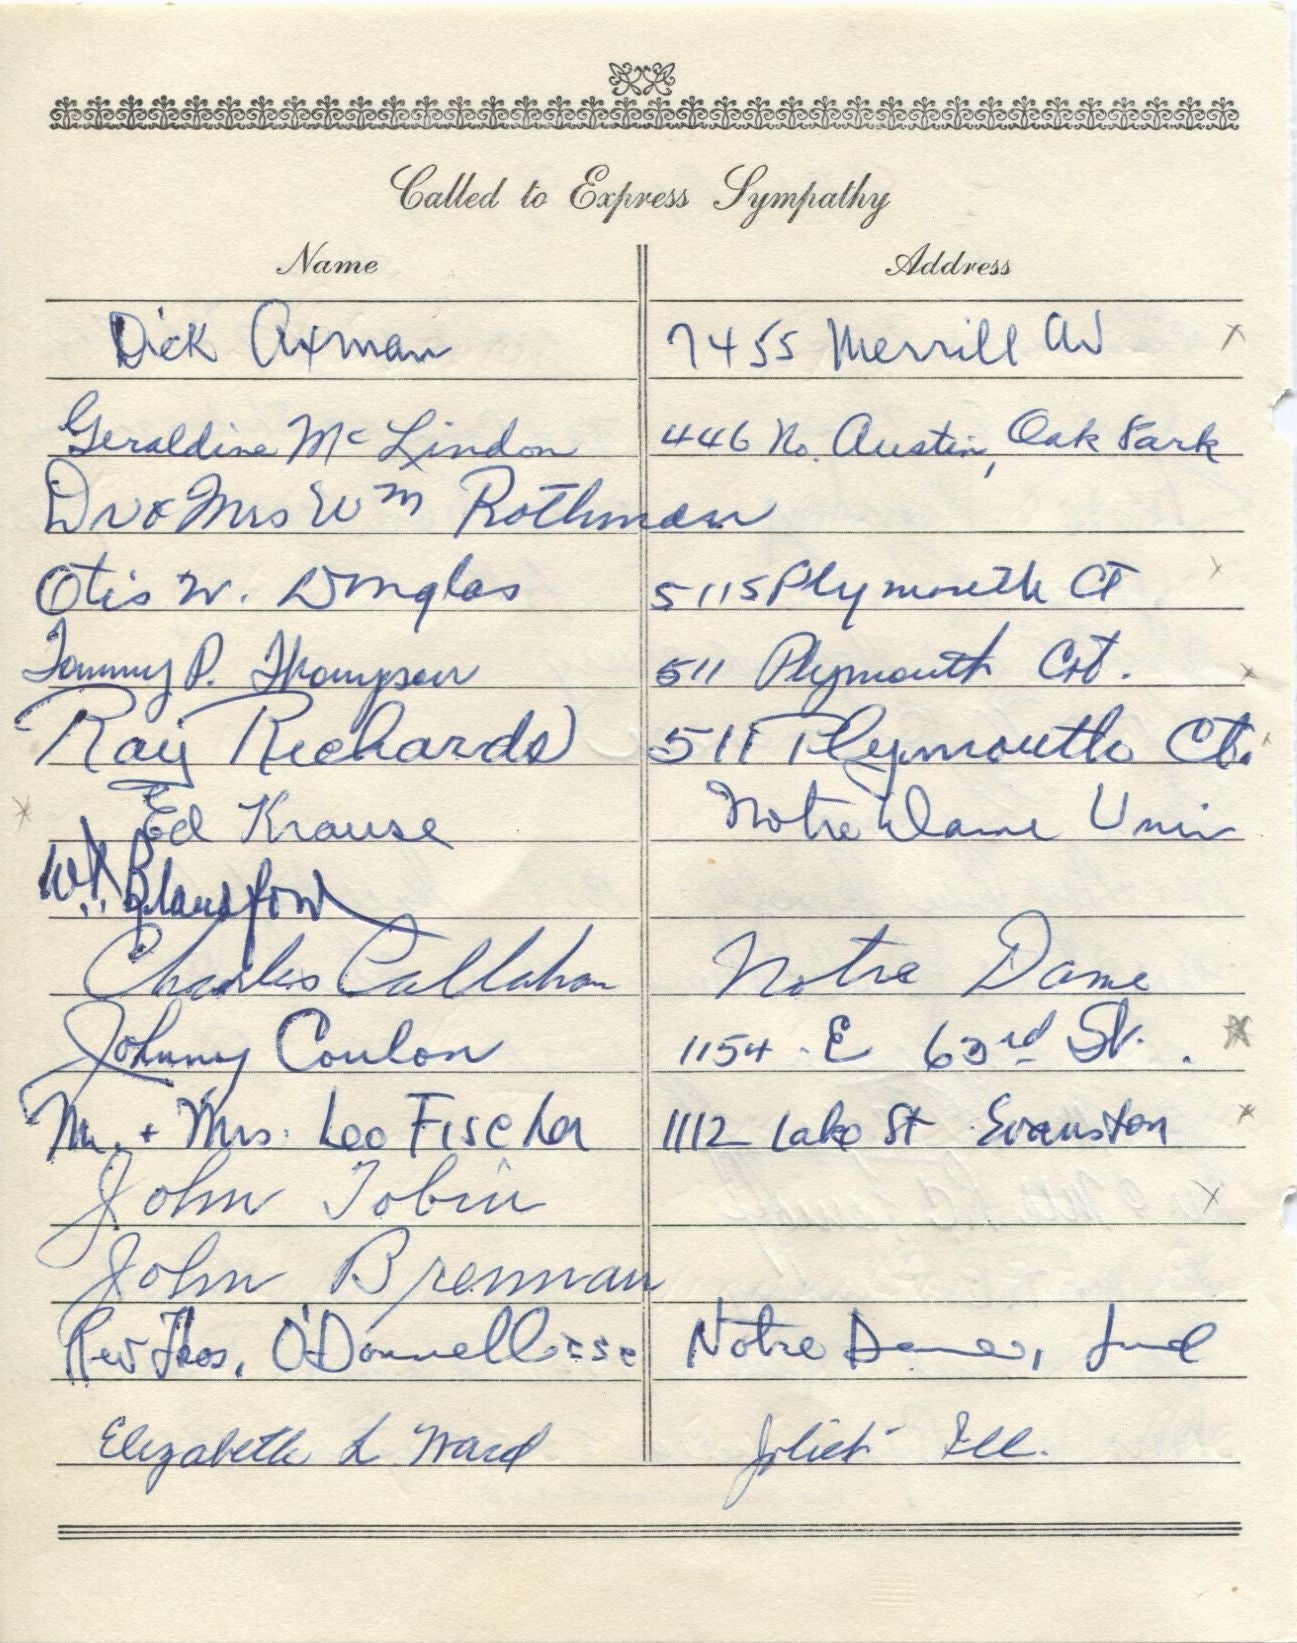 Called to Express Sympathy
Name Address
Dick Axman 7455 Merrill Av
Geraldine McLindon 446 No. Austin, Oak Park
Dr & Mrs Wm Rothman
Otis W. Douglas 5115 Plymouth Ct
Tommy P. Thompson 511 Plymouth Crt.
Ray Richards 511 Plymouth Ct.
Ed Krause Notre Dame Univ
Charles Callahan Notre Dame
Johnny Coulon 1154 E 63rd St.
Mr. + Mrs. Leo Fischer 1112 Lake St Evanston
John Tobin
John Brennan
Rev Thos. O'Donnell csc Notre Dame, Ind
Elizabeth L Ward Joliet Ill.